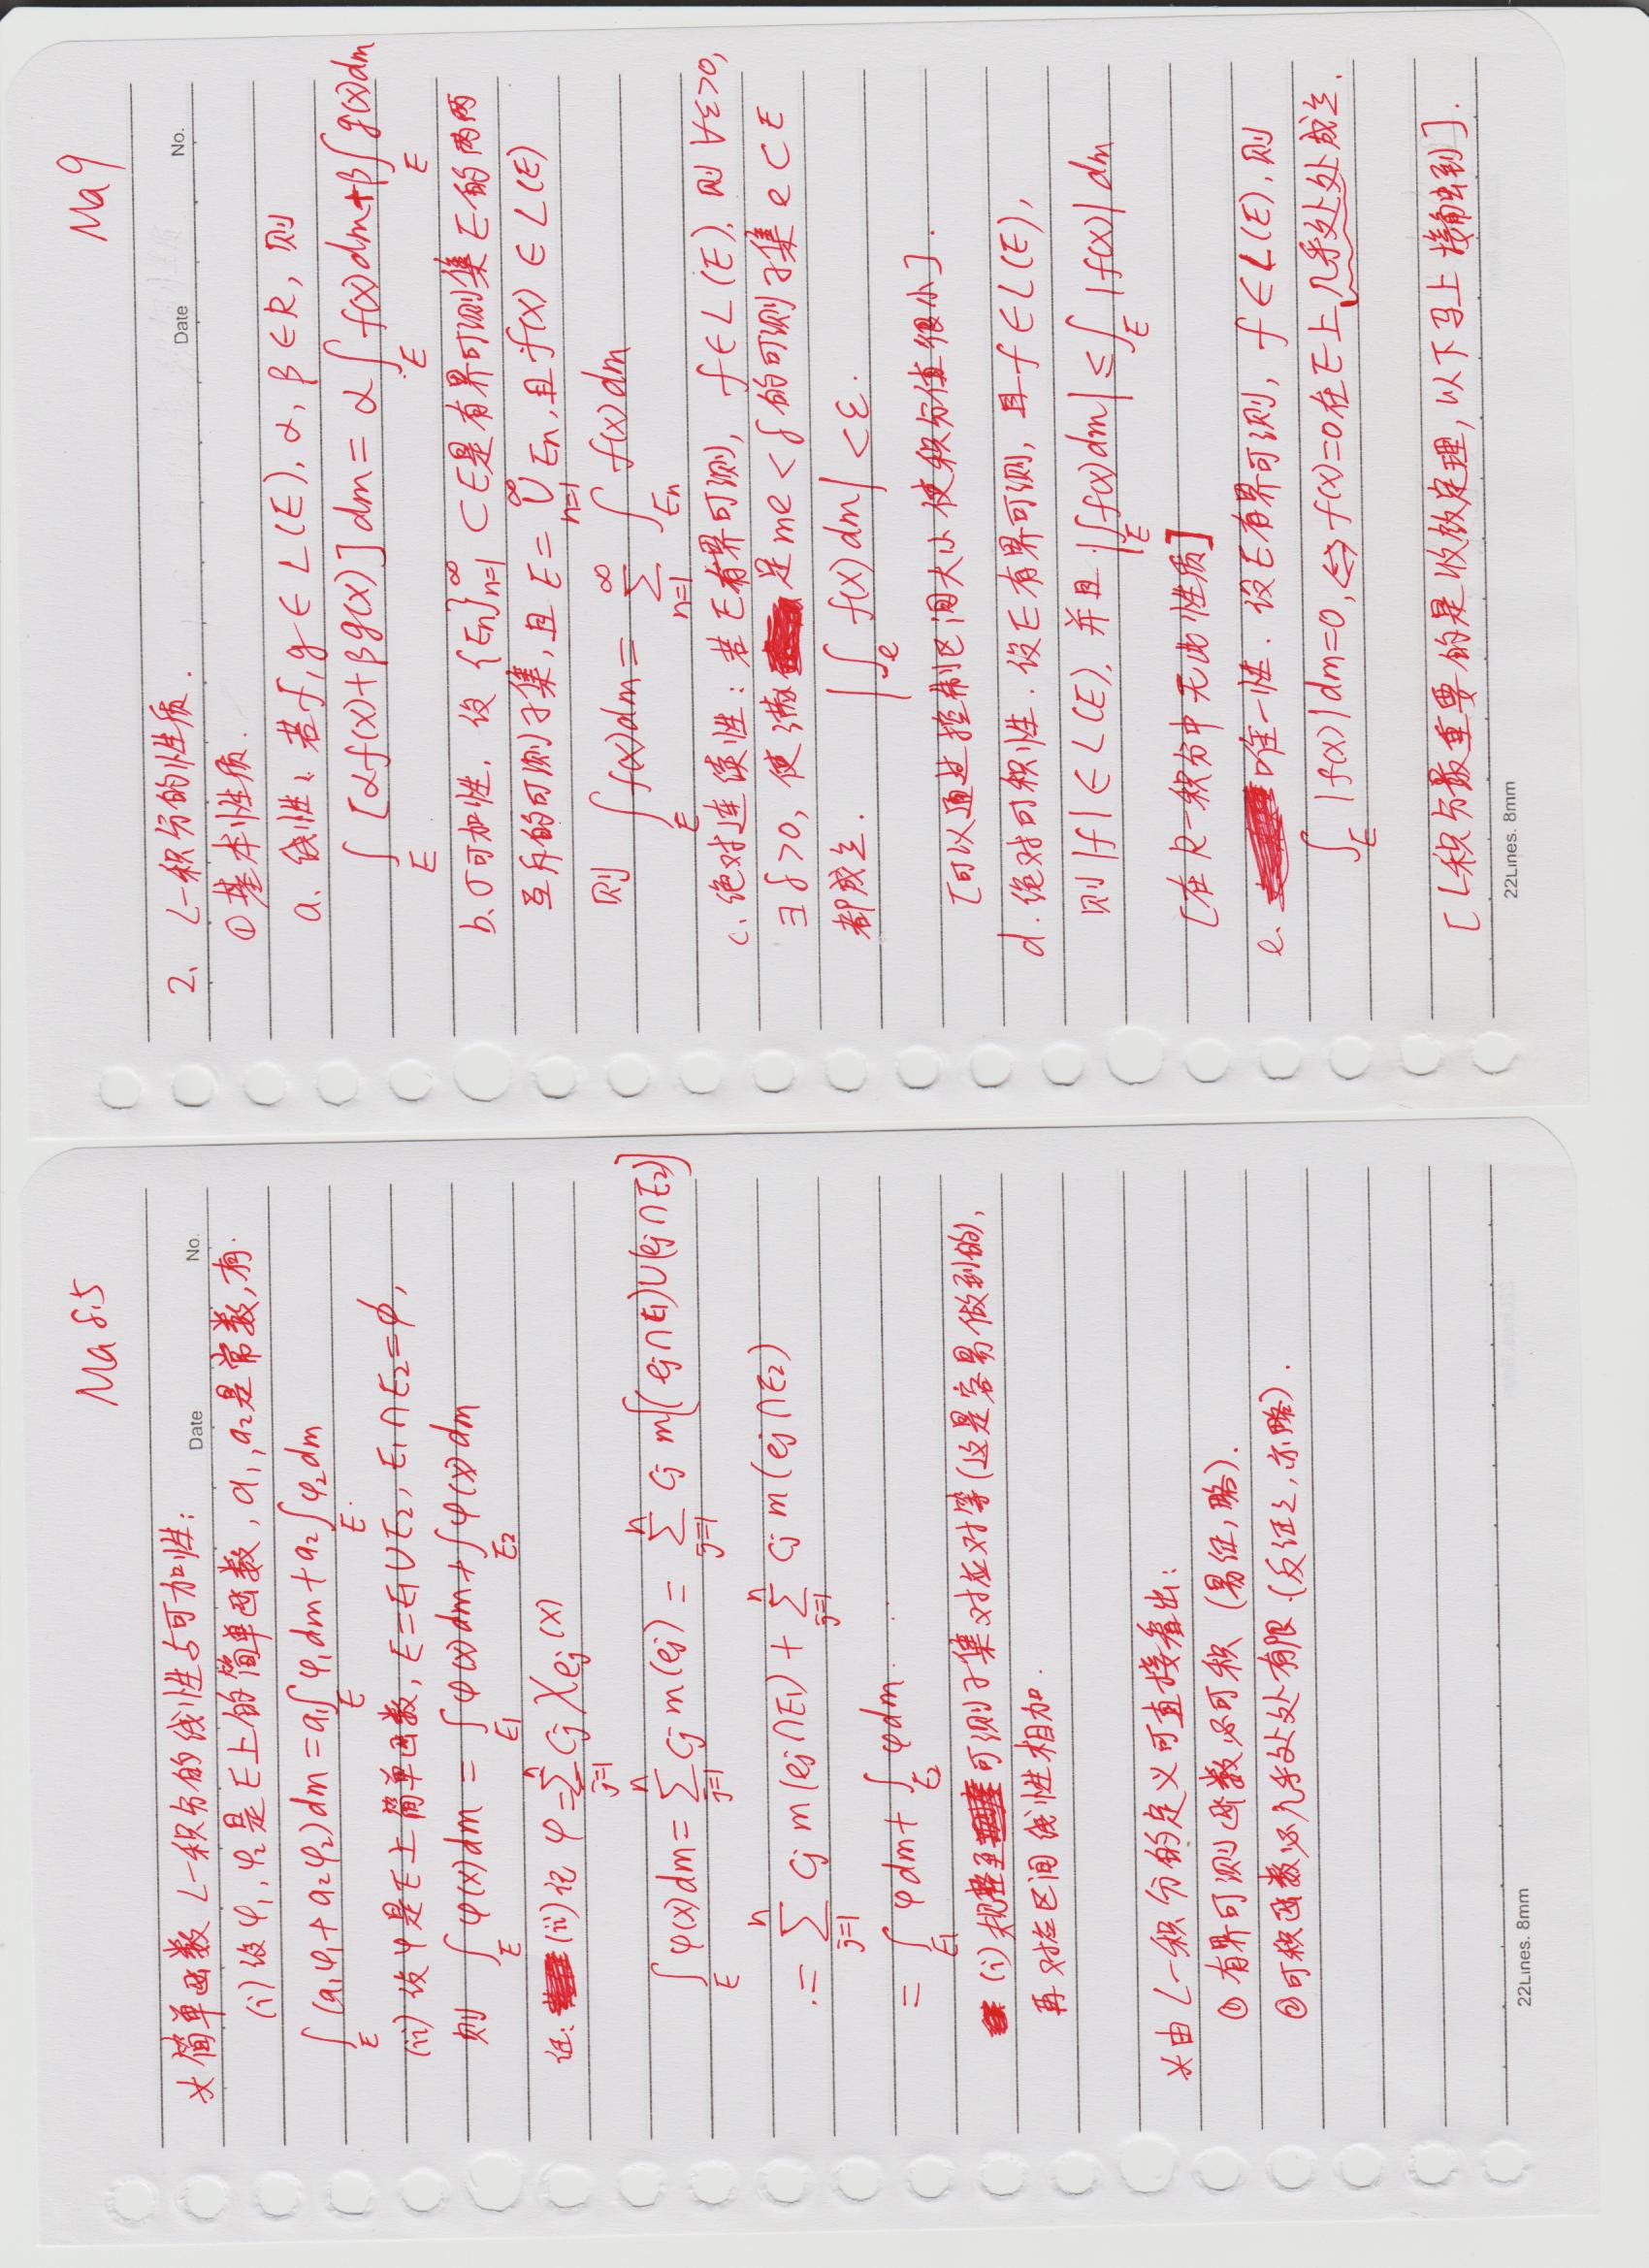 Ma 8.5
* 简单函数 L-积分的线性与可加性:
Date No.
(i) 设 φ₁, φ₂ 是 E 上的简单函数, a₁, a₂ 是常数, 有.
∫_E (a₁φ₁ + a₂φ₂) dm = a₁∫_E φ₁ dm + a₂∫_E φ₂ dm
(ii) 设 φ 是 E 上简单函数, E = E₁∪E₂, E₁∩E₂ = ϕ,
则 ∫_E φ(x) dm = ∫_{E₁} φ(x) dm + ∫_{E₂} φ(x) dm
证: (ii) 记 φ = ∑_{j=1}^n c_j χ_{e_j}(x)
∫_E φ(x) dm = ∑_{j=1}^n c_j m(e_j) = ∑_{j=1}^n c_j m[(e_j∩E₁)∪(e_j∩E₂)]
= ∑_{j=1}^n c_j m(e_j∩E₁) + ∑_{j=1}^n c_j m(e_j∩E₂)
= ∫_{E₁} φ dm + ∫_{E₂} φ dm.
(i) 规整至可测子集对应对等(这是容易做到的),
再对应区间线性相加.
* 由 L-积分的定义可直接看出:
① 有界可测函数必可积 (易证, 略).
② 可积函数必几乎处处有限. (反证之, 亦略).
22Lines. 8mm
Ma 9
2. L-积分的性质.
Date No.
① 基本性质.
a. 线性: 若 f, g ∈ L(E), α, β ∈ R, 则
∫_E [αf(x) + βg(x)] dm = α∫_E f(x) dm + β∫_E g(x) dm
b. σ可加性. 设 {E_n}_{n=1}^∞ ⊂ E 是有界可测集 E 的两两
互斥的可测子集, 且 E = ∪_{n=1}^∞ E_n, 且 f(x) ∈ L(E)
则 ∫_E f(x) dm = ∑_{n=1}^∞ ∫_{E_n} f(x) dm
c. 绝对连续性: 若 E 有界可测, f ∈ L(E), 则 ∀ε>0,
∃δ>0, 使满足 me < δ 的可测子集 e ⊂ E
都成立. |∫_e f(x) dm| < ε.
[可以通过控制区间大小使积分值很小].
d. 绝对可积性. 设 E 有界可测, 且 f ∈ L(E),
则 |f| ∈ L(E), 并且 |∫_E f(x) dm| ≤ ∫_E |f(x)| dm
[在 R-积分中无此性质]
e. 唯一性. 设 E 有界可测, f ∈ L(E), 则
∫_E |f(x)| dm = 0, ⇔ f(x)=0 在 E 上几乎处处成立.
[L积分最重要的是收敛定理, 以下马上接触到].
22Lines. 8mm